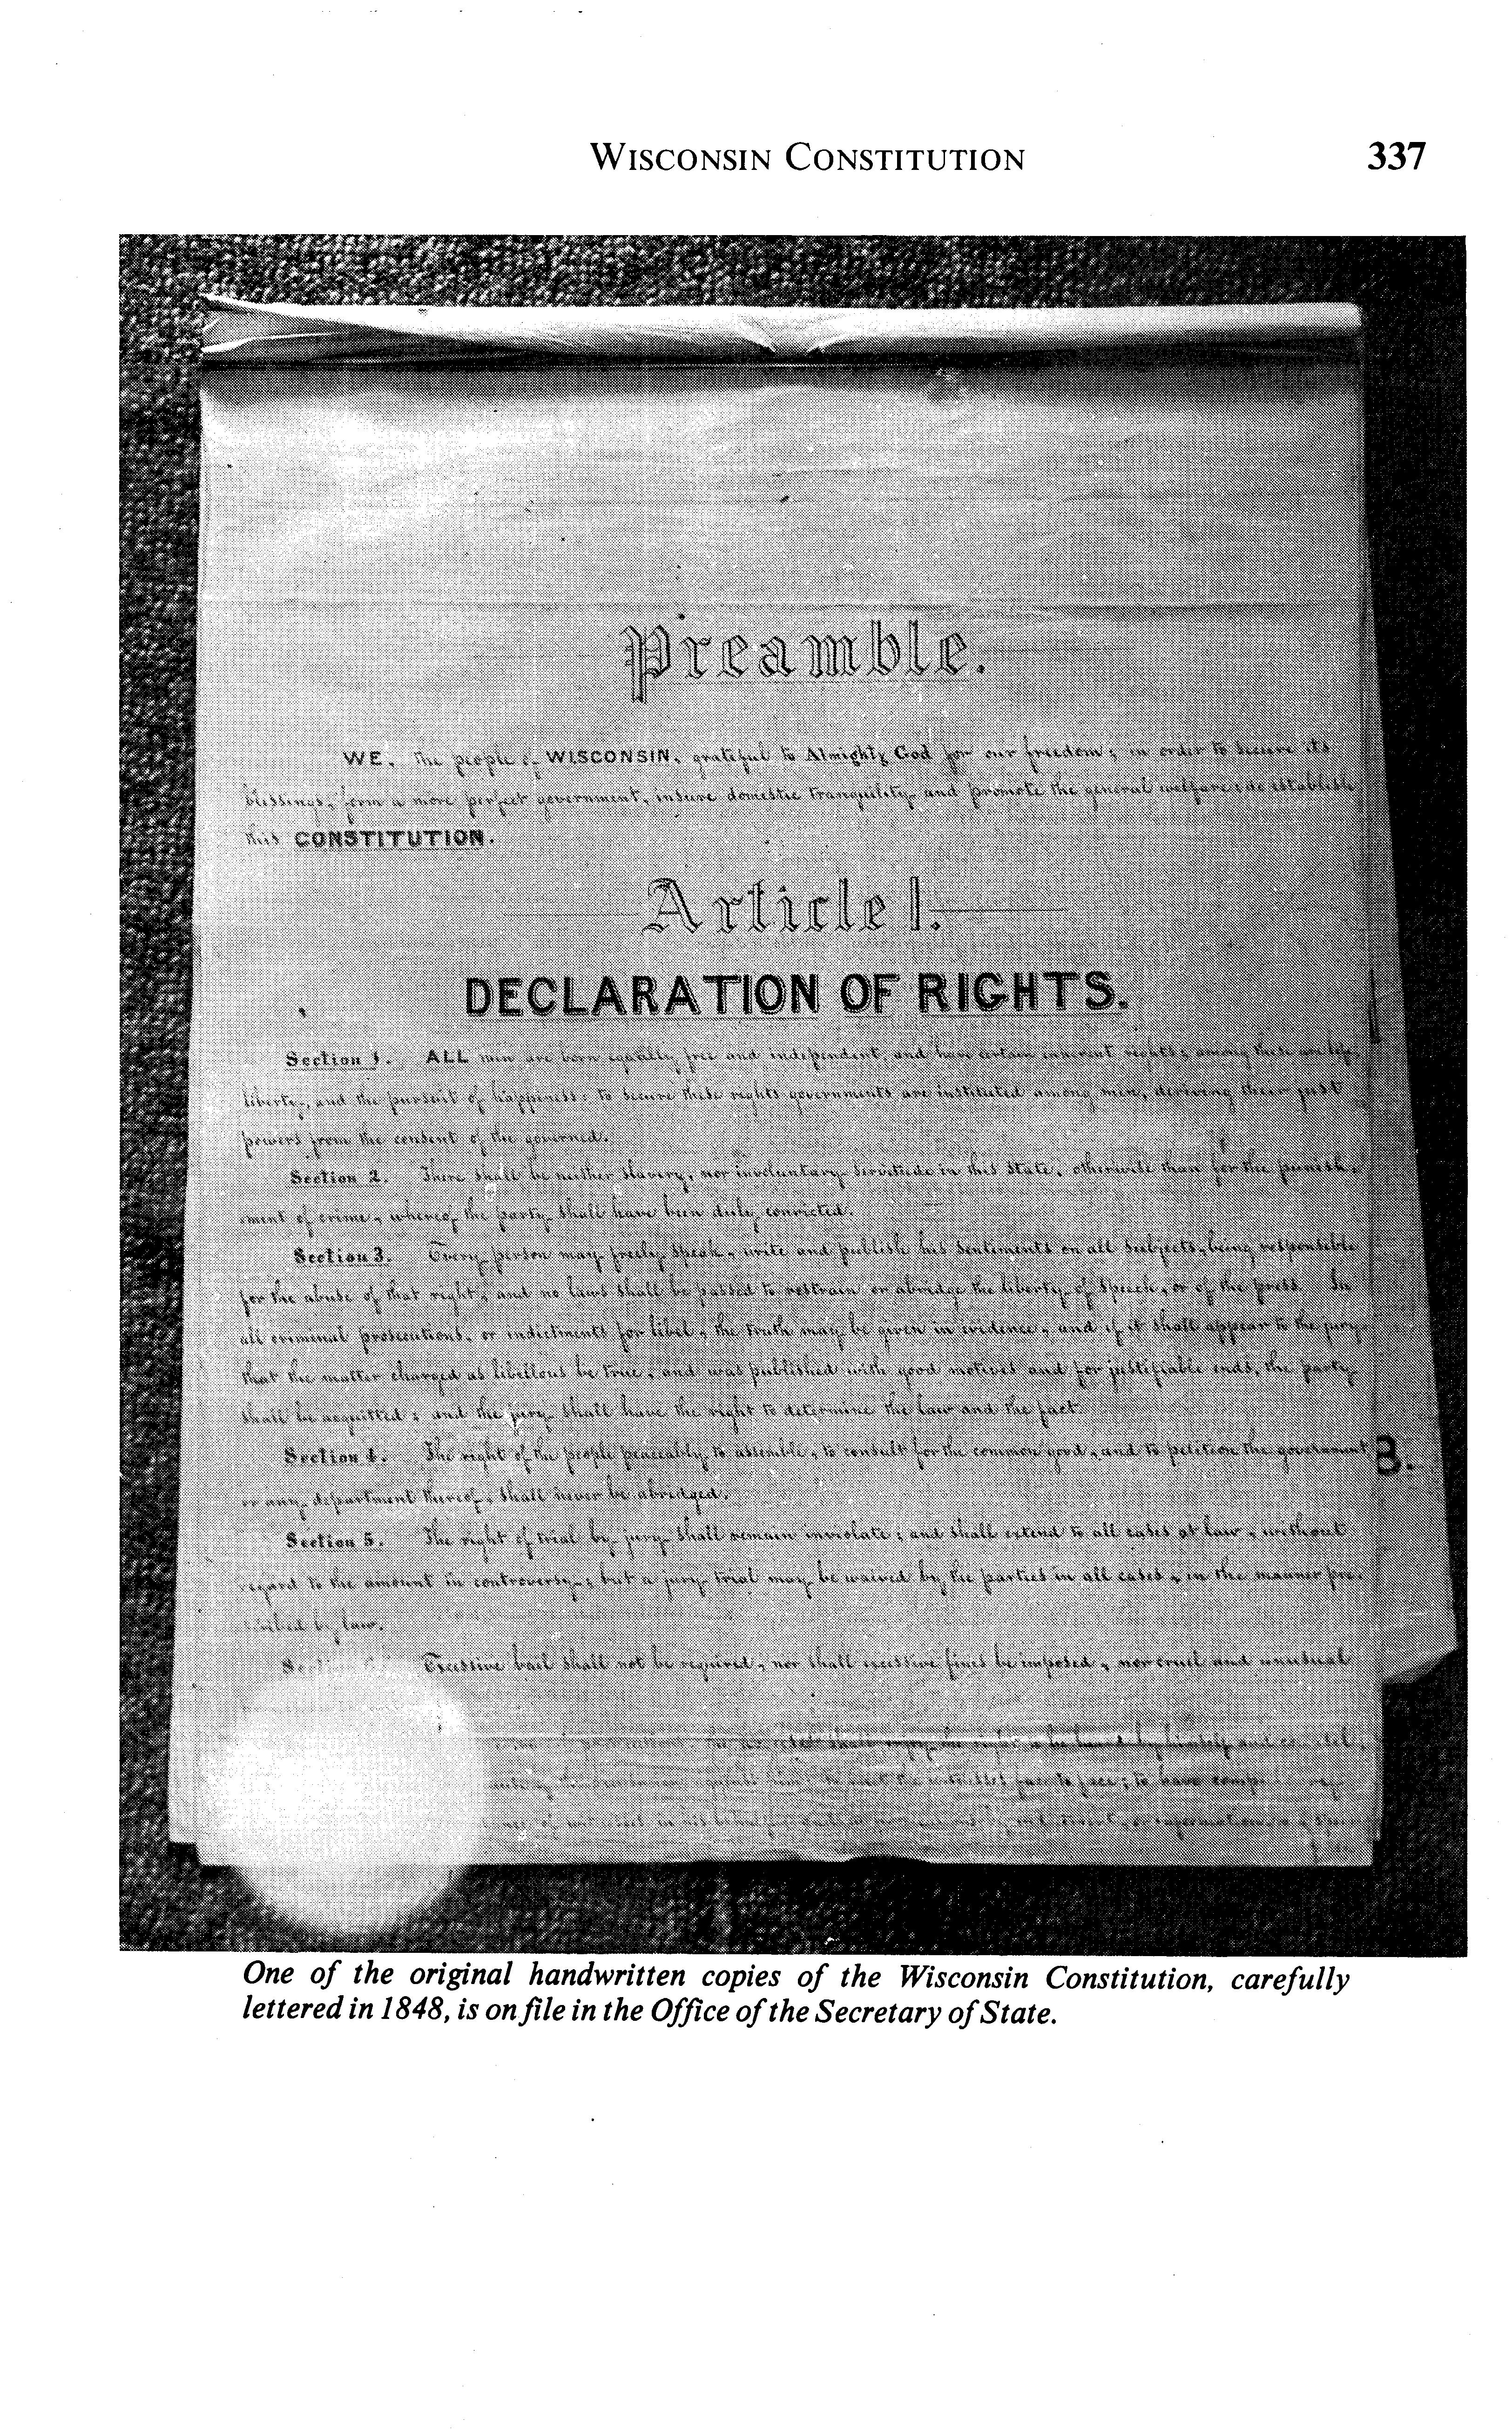 WISCONSIN CONSTITUTION 337
Preamble.
WE, the people of WISCONSIN, grateful to Almighty God for our freedom; in order to secure its
blessings, form a more perfect government, insure domestic tranquility and promote the general welfare; do establish
this CONSTITUTION.
Article 1.
DECLARATION OF RIGHTS.
Section 1. ALL men are born equally free and independent, and have certain inherent rights; among these are life,
liberty, and the pursuit of happiness: to secure these rights governments are instituted among men, deriving their just
powers from the consent of the governed.
Section 2. There shall be neither slavery, nor involuntary servitude in this State, otherwise than for the punish-
ment of crime, whereof the party shall have been duly convicted.
Section 3. Every person may freely speak, write and publish his sentiments on all subjects, being responsible
for the abuse of that right, and no laws shall be passed to restrain or abridge the liberty of speech, or of the press. In
all criminal prosecutions, or indictments for libel, the truth may be given in evidence, and if it shall appear to the jury
that the matter charged as libellous be true, and was published with good motives and for justifiable ends, the party
shall be acquitted; and the jury shall have the right to determine the law and the fact.
Section 4. The right of the people peaceably to assemble, to consult for the common good, and to petition the government
or any department thereof, shall never be abridged.
Section 5. The right of trial by jury shall remain inviolate; and shall extend to all cases at law, without
regard to the amount in controversy; but a jury trial may be waived by the parties in all cases, in the manner pre-
scribed by law.
Excessive bail shall not be required, nor shall excessive fines be imposed, nor cruel and unusual
shall enjoy the right to be heard by himself and
the witnesses face to face; to have
in his behalf
B.
One of the original handwritten copies of the Wisconsin Constitution, carefully
lettered in 1848, is on file in the Office of the Secretary of State.